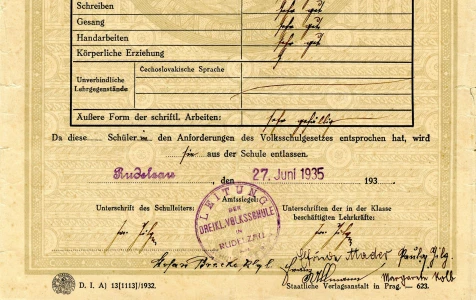 Schreiben sehr gut
Gesang sehr gut
Handarbeiten sehr gut
Körperliche Erziehung
Unverbindliche Lehrgegenstände
Čechoslovakische Sprache
Äußere Form der schriftl. Arbeiten: sehr gefällig
Da diese Schülerin den Anforderungen des Volksschulgesetzes entsprochen hat, wird
sie aus der Schule entlassen.
den 27. Juni 1935 193
Amtssiegel:
Unterschrift des Schulleiters:
Unterschriften der in der Klasse
beschäftigten Lehrkräfte:
LEITUNG
DER
DREIKL. VOLKSSCHULE
IN
Mader
D. I. A) 13[1113]/1932.
Staatliche Verlagsanstalt in Prag 623.